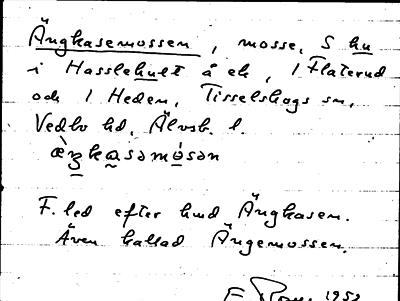 Ängkasemossen, mosse, S hu
i Hasslehult å ek, 1 Flaterud
och 1 Heden, Tisselskogs sn,
Vedbo hd, Älvsb. l.
F. led efter hmd Ängkasen.
Även kallad Ängemossen.
1952